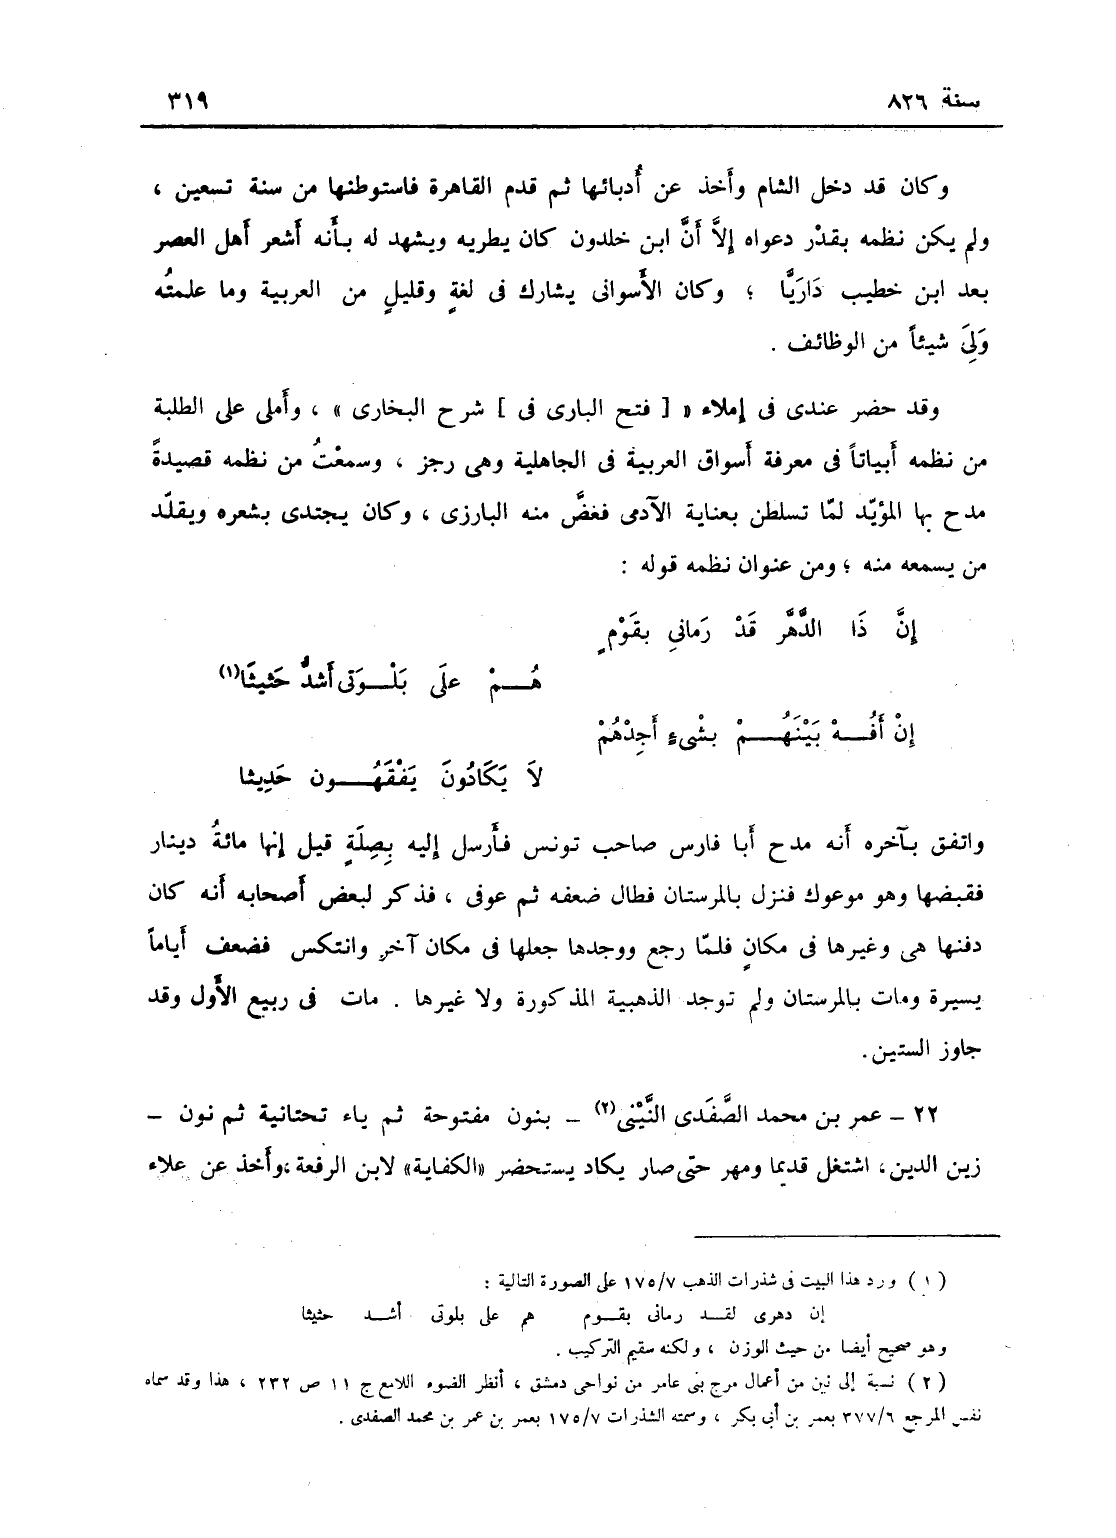 سنة ٨٢٦ ٣١٩
وكان قد دخل الشام وأَخذ عن أُدبائها ثم قدم القاهرة فاستوطنها من سنة تسعين ،
ولم يكن نظمه بقدْر دعواه إلاَّ أَنَّ ابن خلدون كان يطريه ويشهد له بأَنه أَشعر أَهل العصر
بعد ابن خطيب دَارَيَّا ؛ وكان الأَسوانى يشارك فى لغةٍ وقليلٍ من العربية وما علمتُه
وَلِىَ شيئاً من الوظائف .
وقد حضر عندى فى إملاء « [ فتح البارى فى ] شرح البخارى » ، وأَملى على الطلبة
من نظمه أَبياتاً فى معرفة أَسواق العربية فى الجاهلية وهى رجز ، وسمعْتُ من نظمه قصيدةً
مدح بها المؤيّد لمّا تسلطن بعناية الآدمى فغضَّ منه البارزى ، وكان يجتدى بشعره ويقلّد
من يسمعه منه ؛ ومن عنوان نظمه قوله :
إِنَّ ذَا الدَّهْر قَدْ رَمانِى بقَوْمٍ
هُـمْ علَى بَلْـوَتى أَشدُّ حَثيثًا(١)
إِنْ أَفُـهْ بَيْنَهُـمْ بشْىءٍ أَجِدْهُمْ
لاَ يَكَادُونَ يَفْقَهُـون حَدِيثا
واتفق بآخره أَنه مدح أَبا فارس صاحب تونس فأَرسل إليه بِصِلَةٍ قيل إنها مائةُ دينار
فقبضها وهو موعوك فنزل بالمرستان فطال ضعفه ثم عوفى ، فذكر لبعض أَصحابه أَنه كان
دفنها هى وغيرها فى مكانٍ فلمّا رجع ووجدها جعلها فى مكان آخر وانتكس فضعف أَياماً
يسيرة ومات بالمرستان ولم توجد الذهبية المذكورة ولا غيرها . مات فى ربيع الأَول وقد
جاوز الستين.
٢٢ – عمر بن محمد الصَّفَدى النَّيْنى(٢) – بنون مفتوحة ثم ياء تحتانية ثم نون –
زين الدين، اشتغل قديما ومهر حتى صار يكاد يستحضر «الكفاية» لابن الرفعة،وأَخذ عن علاء
( ١ ) ورد هذا البيت فى شذرات الذهب ١٧٥/٧ على الصورة التالية :
إن دهرى لقـد رمانى بقـوم هم على بلوتى أشـد حثيثا
وهو صحيح أيضا من حيث الوزن ، ولكنه سقيم التركيب .
( ٢ ) نسبة إلى نين من أعمال مرج بنى عامر من نواحى دمشق ، أنظر الضوء اللامع ج ١١ ص ٢٣٢ ، هذا وقد سماه
نفس المرجع ٣٧٧/٦ بعمر بن أبى بكر ، وسمته الشذرات ١٧٥/٧ بعمر بن عمر بن محمد الصفدى .